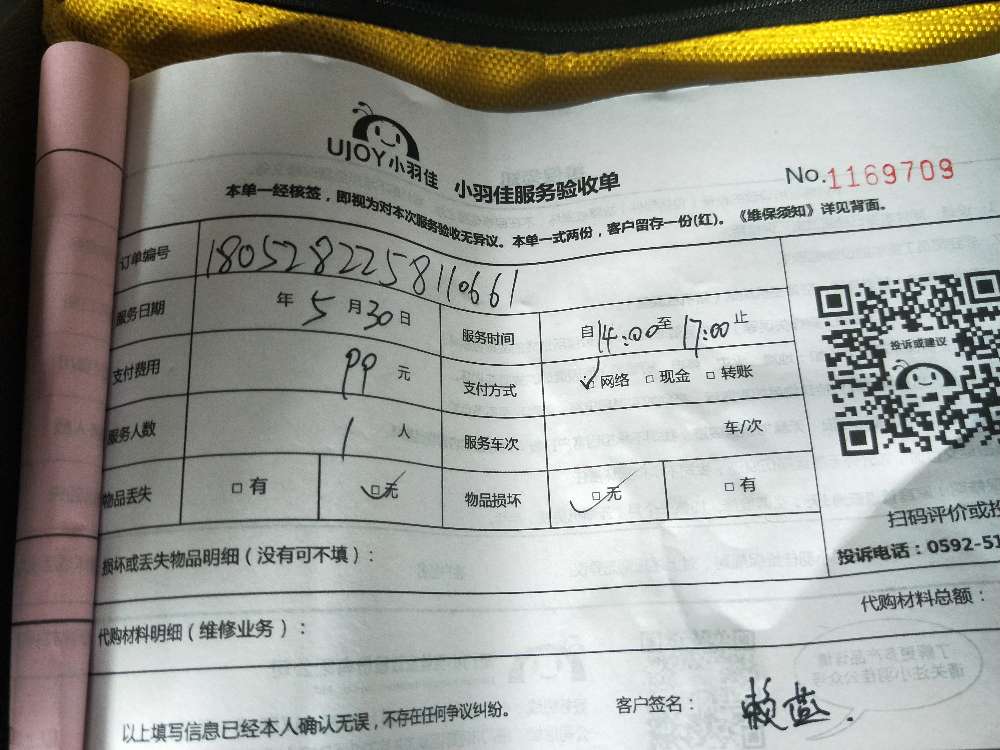 UJOY小羽佳 小羽佳服务验收单 No.1169709
本单一经核签，即视为对本次服务验收无异议。本单一式两份，客户留存一份(红)。《维保须知》详见背面。
订单编号 180528225811066 1
服务日期 年 5 月 30 日 服务时间 自 14:00 至 17:00 止
支付费用 99 元 支付方式 ☑ 网络 □ 现金 □ 转账
服务人数 1 人 服务车次 车/次
物品丢失 □ 有 ☑ 无 物品损坏 ☑ 无 □ 有
投诉或建议
扫码评价或投
投诉电话：0592-51
损坏或丢失物品明细（没有可不填）：
代购材料明细（维修业务）： 代购材料总额：
了解更多产品详情
请关注小羽佳公众号
以上填写信息已经本人确认无误，不存在任何争议纠纷。 客户签名： 赖燕.